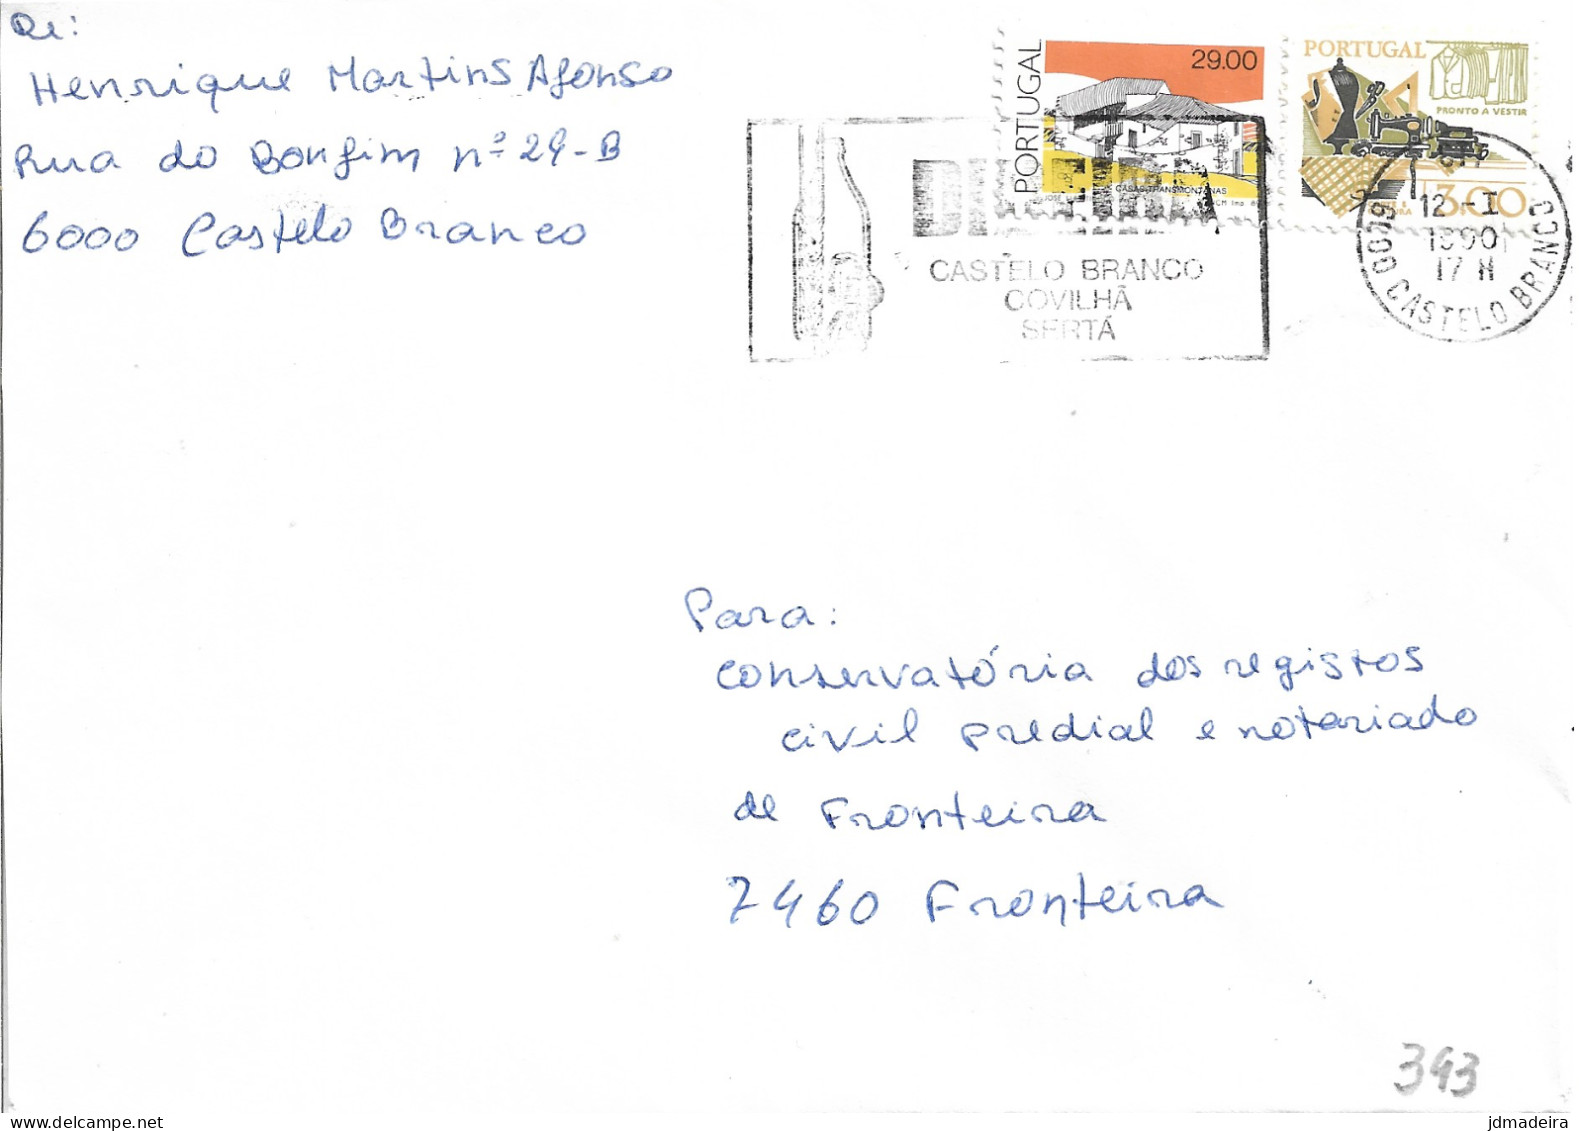 De:
Henrique Martins Afonso
Rua do Bonfim nº 29-B
6000 Castelo Branco
PORTUGAL
29.00
CASAS TRANSMONTANAS
PORTUGAL
PRONTO A VESTIR
3.00
CASTELO BRANCO
COVILHÃ
SERTÃ
12-I
1990
17 H
6000 CASTELO BRANCO
Para:
Conservatória dos registos
civil predial e notariado
de Fronteira
7460 Fronteira
343
jdmadeira